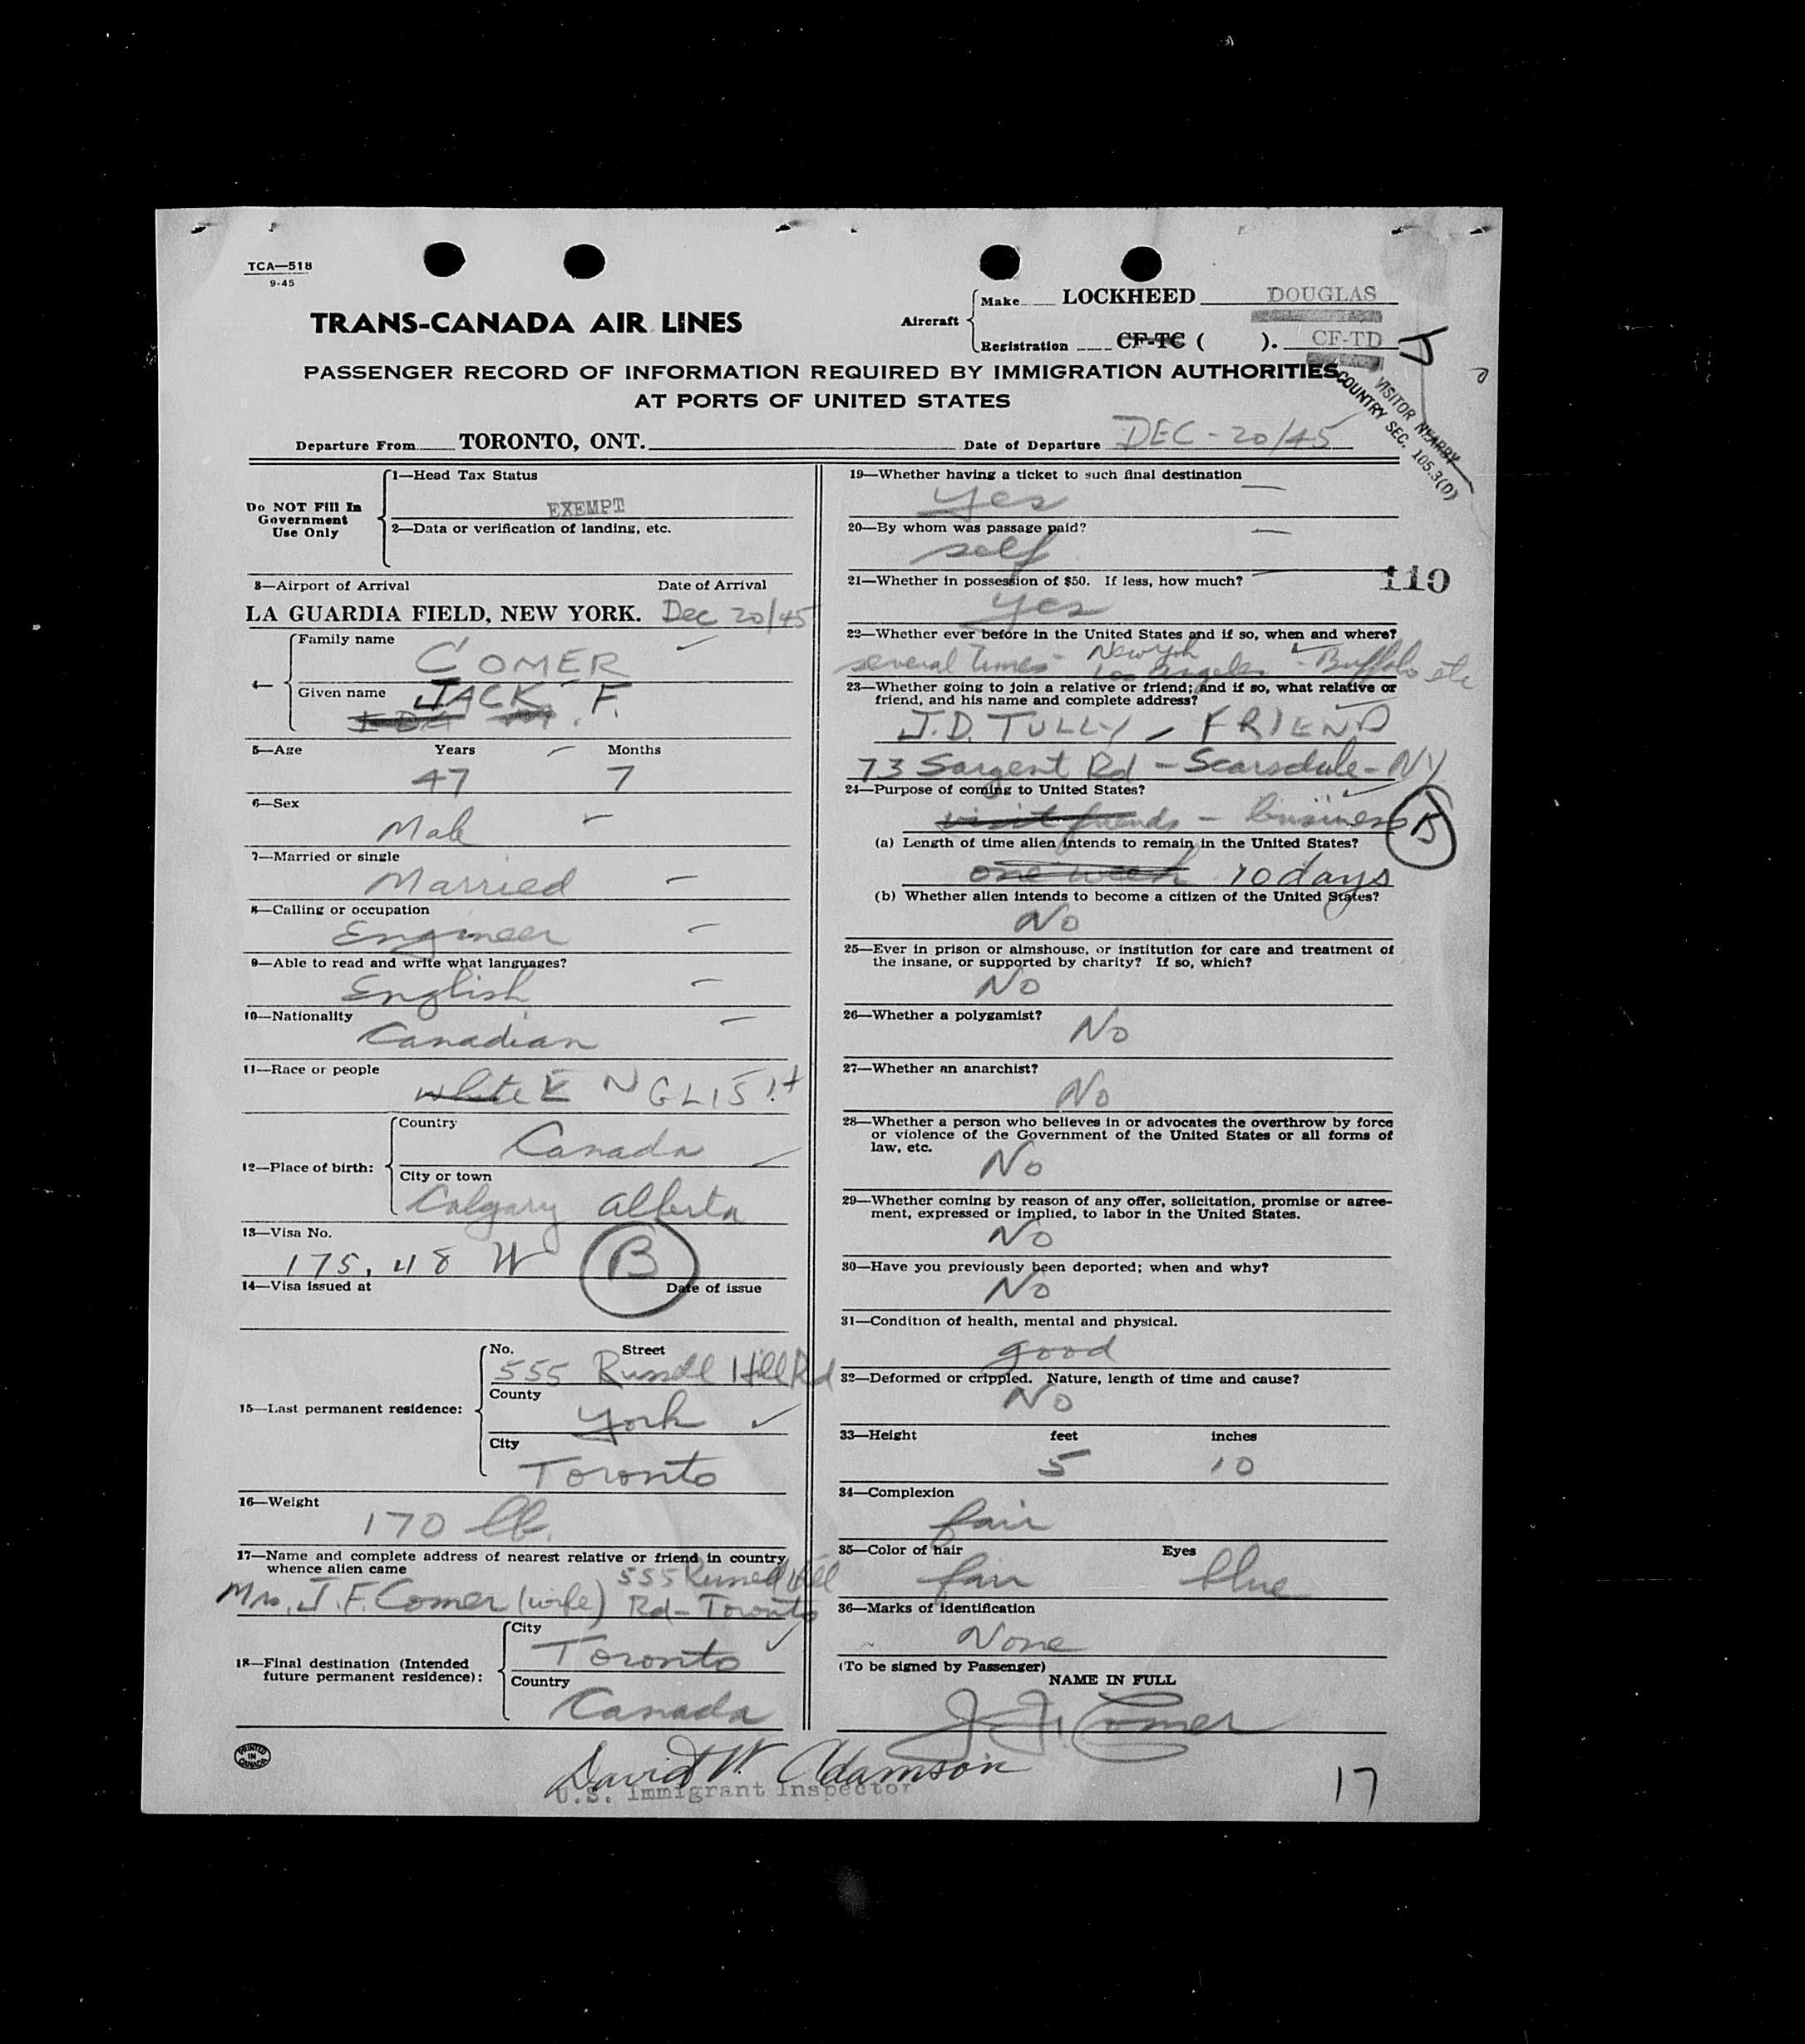 TCA—518
9-45
TRANS-CANADA AIR LINES
Aircraft
Make LOCKHEED DOUGLAS
Registration CF-TC ( ). CF-TD J
PASSENGER RECORD OF INFORMATION REQUIRED BY IMMIGRATION AUTHORITIES
AT PORTS OF UNITED STATES
VISITOR NEARBY
COUNTRY SEC. 105.3(D)
Departure From TORONTO, ONT. Date of Departure DEC - 20/45
Do NOT Fill In
Government
Use Only
1—Head Tax Status
EXEMPT
2—Data or verification of landing, etc.
3—Airport of Arrival Date of Arrival
LA GUARDIA FIELD, NEW YORK. Dec 20/45
4—
Family name
COMER
Given name JACK F.
5—Age Years Months
47 7
6—Sex
Male
7—Married or single
Married
8—Calling or occupation
Engineer
9—Able to read and write what languages?
English
10—Nationality
Canadian
11—Race or people
white ENGLISH
12—Place of birth:
Country
Canada
City or town
Calgary Alberta
13—Visa No.
175.48 W B
14—Visa issued at Date of issue
15—Last permanent residence:
No. Street
555 Russell Hill Rd
County
York
City
Toronto
16—Weight
170 lb.
17—Name and complete address of nearest relative or friend in country
whence alien came
555 Russell Hill
Mrs. J. F. Comer (wife) Rd - Toronto
18—Final destination (Intended
future permanent residence):
City
Toronto
Country
Canada
19—Whether having a ticket to such final destination
Yes
20—By whom was passage paid?
self
21—Whether in possession of $50. If less, how much?
110
yes
22—Whether ever before in the United States and if so, when and where?
several times - New York
Los Angeles - Buffalo etc
23—Whether going to join a relative or friend; and if so, what relative or
friend, and his name and complete address?
J.D. TULLY - FRIEND
73 Sargent Rd - Scarsdale - NY
24—Purpose of coming to United States?
visit friends - business B
(a) Length of time alien intends to remain in the United States?
one week 10 days
(b) Whether alien intends to become a citizen of the United States?
No
25—Ever in prison or almshouse, or institution for care and treatment of
the insane, or supported by charity? If so, which?
No
26—Whether a polygamist?
No
27—Whether an anarchist?
No
28—Whether a person who believes in or advocates the overthrow by force
or violence of the Government of the United States or all forms of
law, etc.
No
29—Whether coming by reason of any offer, solicitation, promise or agree-
ment, expressed or implied, to labor in the United States.
No
30—Have you previously been deported; when and why?
No
31—Condition of health, mental and physical.
good
32—Deformed or crippled. Nature, length of time and cause?
No
33—Height feet inches
5 10
34—Complexion
fair
35—Color of hair Eyes
fair blue
36—Marks of identification
None
(To be signed by Passenger)
NAME IN FULL
J. F. Comer
PRINTED IN CANADA
David W. Adamson
U.S. Immigrant Inspector
17